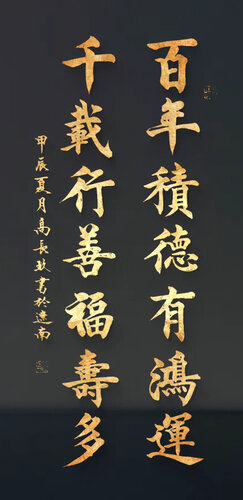 百年積德有鴻運
千載行善福壽多
甲辰夏月高長敏書於遼南